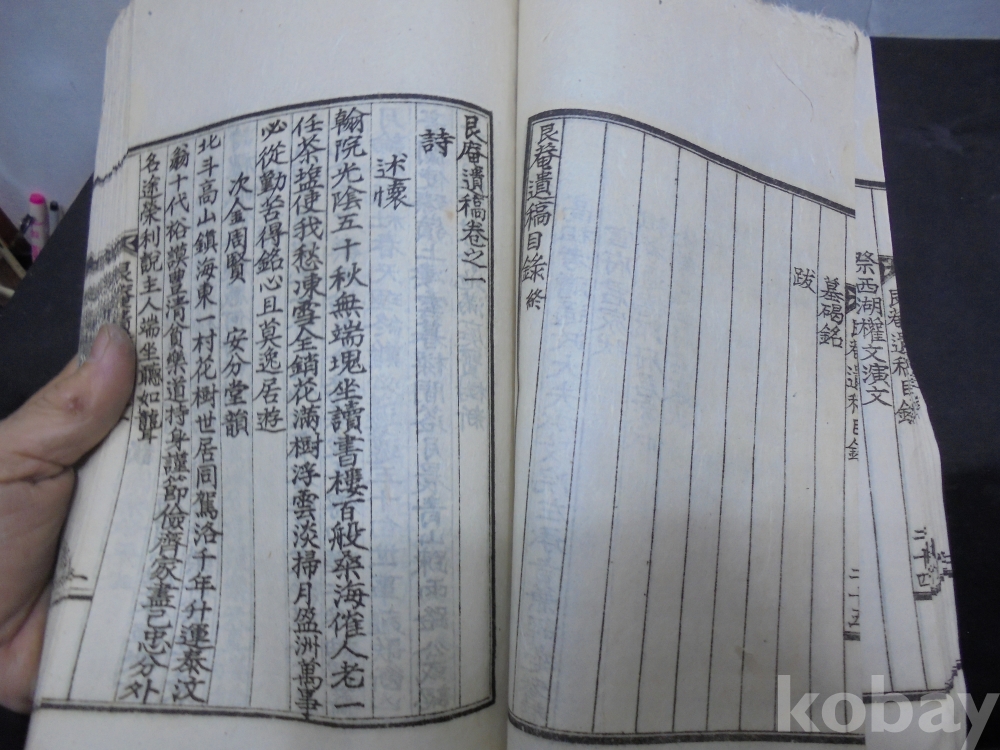 祭西湖權文演文
墓碣銘
跋
艮菴遺稿目錄
二十五
二十四
艮菴遺稿目錄 終
艮庵遺稿卷之一
詩
述懷
翰院光陰五十秋無端塊坐讀書樓百般榮海催人老一
任茶塩使我愁凍雪全銷花滿樹浮雲淡掃月盈洲萬事
必從勤苦得銘心且莫逸居遊
次金周賢 安分堂韻
北斗高山鎮海東一村花樹世居同駕洛千年升運泰汶
翁十代裕灢豊淸貧樂道持身謹節儉齊家盡己忠分外
名途榮利說主人端坐聽如聾
kobay